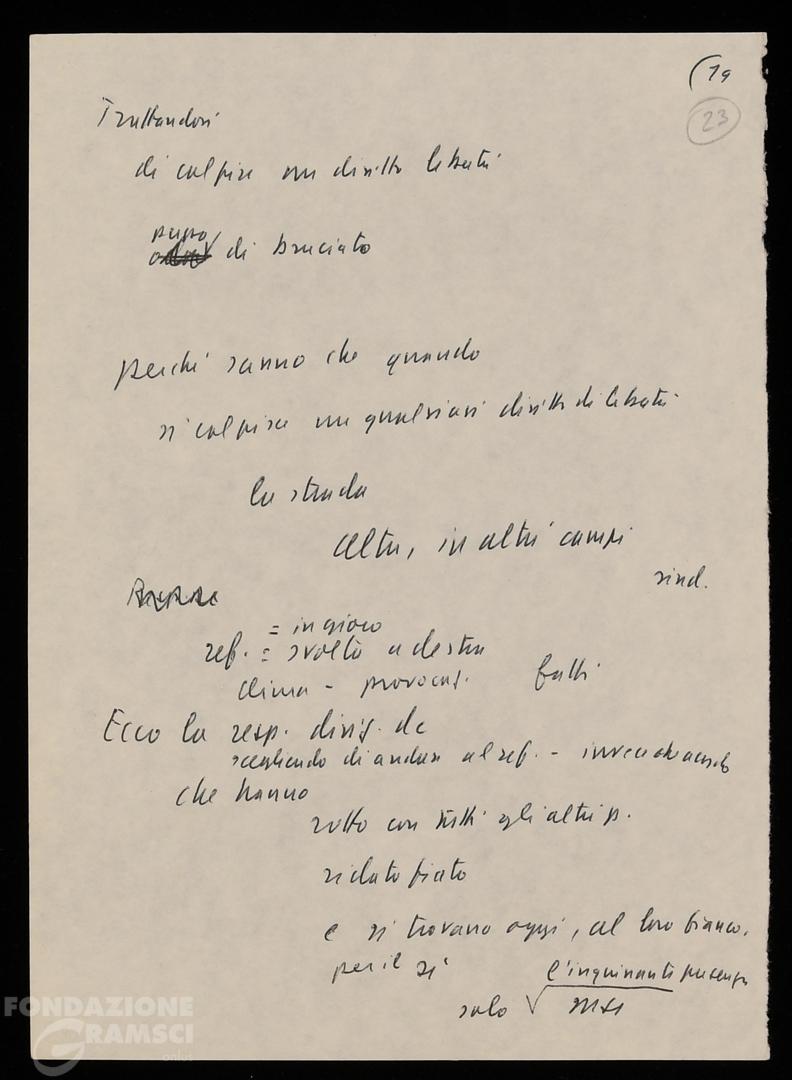 (19
23
Trattandosi
di colpire un diritto libertà
puzzo di bruciato
perché sanno che quando
si colpisce un qualsiasi diritto di libertà
la strada
altri, in altri campi
sind.
= in gioco
ref. = svolta a destra
clima - provocaz. fatti
Ecco la resp. dirig. dc
scegliendo di andare al ref. - invece che accordo
che hanno
rotto con tutti gli altri p.
ridato fiato
e si trovano oggi, al loro fianco,
per il sì l'inquinante presenza
solo MSI
FONDAZIONE
GRAMSCI
onlus